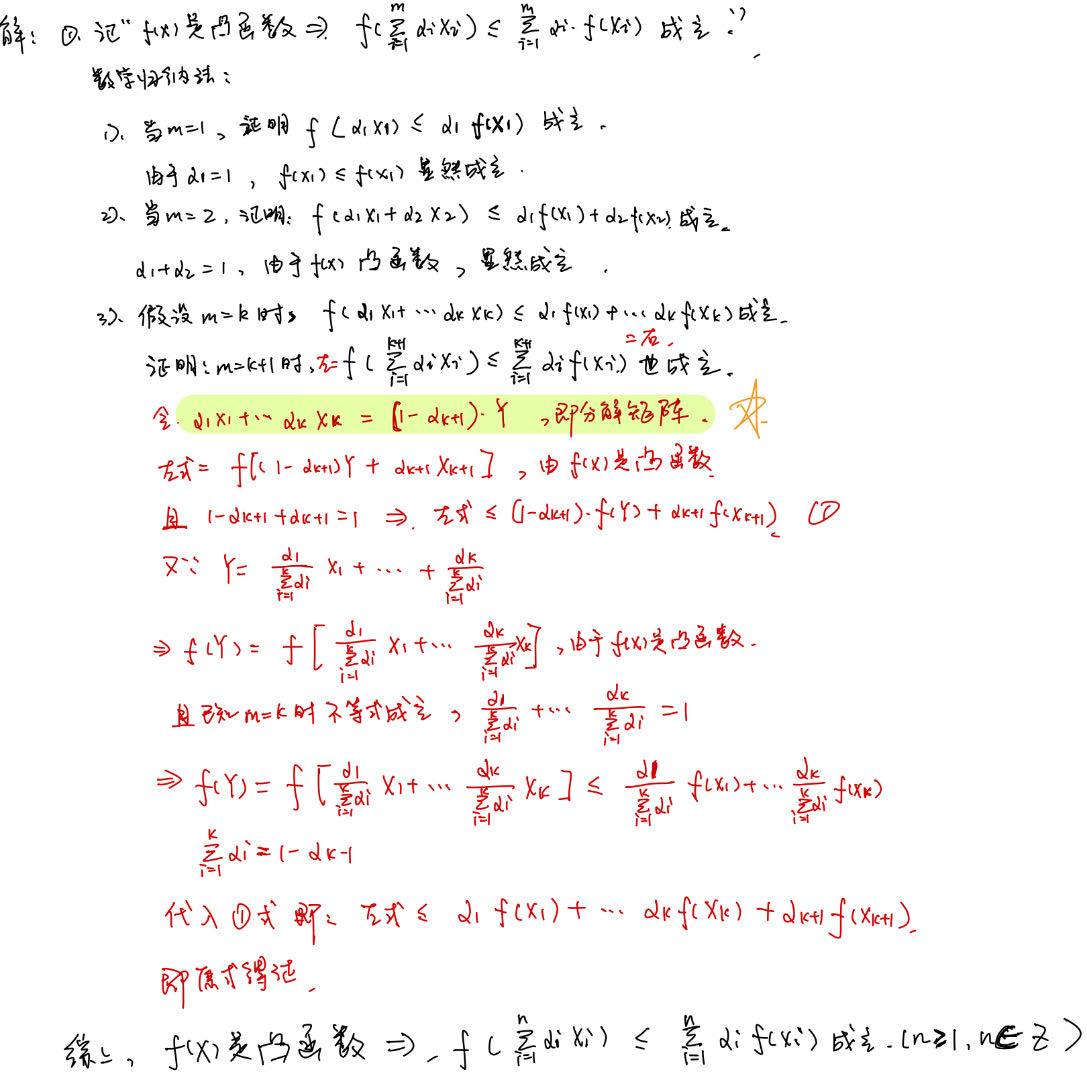 解: ①. 记"f(x)是凸函数 ⇒ f(∑_{i=1}^{m} αixi) ≤ ∑_{i=1}^{m} αi·f(xi) 成立"
数学归纳法:
1). 当m=1, 证明 f(α1x1) ≤ α1 f(x1) 成立.
由于α1=1, f(x1) ≤ f(x1) 显然成立.
2). 当m=2, 证明: f(α1x1+α2x2) ≤ α1f(x1)+α2f(x2) 成立.
α1+α2=1, 由于f(x) 凸函数, 显然成立.
3). 假设m=k时, f(α1x1+⋯αkxk) ≤ α1f(x1)+⋯αkf(xk) 成立.
证明: m=k+1时, 左=f(∑_{i=1}^{k+1} αixi) ≤ ∑_{i=1}^{k+1} αif(xi) =右. 也成立.
令 α1x1+⋯ αkxk = (1-αk+1)·Y, 即分解矩阵.
左式= f[(1-αk+1)Y + αk+1xk+1], 由f(x)是凸函数
且 1-αk+1+αk+1=1 ⇒ 左式 ≤ (1-αk+1)·f(Y)+αk+1f(xk+1). ①
又∵ Y= α1/∑_{i=1}^{k}αi x1 + ⋯ + αk/∑_{i=1}^{k}αi
⇒ f(Y)= f[α1/∑_{i=1}^{k}αi x1+⋯ αk/∑_{i=1}^{k}αi xk], 由于f(x)是凸函数.
且已知m=k时不等式成立, α1/∑_{i=1}^{k}αi +⋯ αk/∑_{i=1}^{k}αi =1
⇒ f(Y)= f[α1/∑_{i=1}^{k}αi x1+⋯ αk/∑_{i=1}^{k}αi xk] ≤ α1/∑_{i=1}^{k}αi f(x1)+⋯ αk/∑_{i=1}^{k}αi f(xk)
∑_{i=1}^{k} αi=1-αk-1
代入①式 即: 左式 ≤ α1 f(x1)+ ⋯ αkf(xk)+αk+1f(xk+1).
即原式得证.
综上, f(x)是凸函数 ⇒ f(∑_{i=1}^{n} αixi) ≤ ∑_{i=1}^{n} αif(xi) 成立.(n≥1, n∈Z)